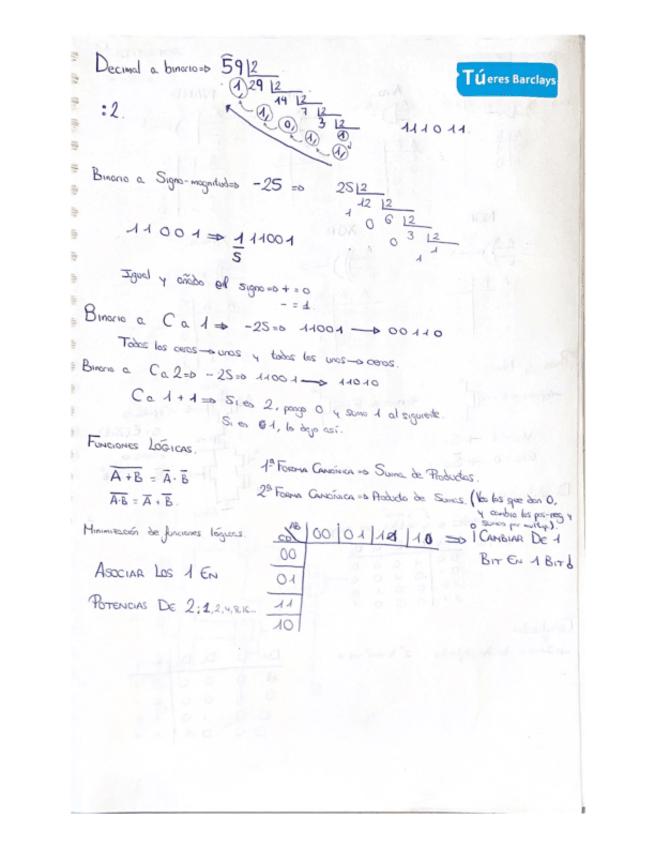 Decimal a binario⇒ 59 |2
1 29 |2
:2. 14 |2
1, 7 |2
0, 3 |2
1, 1
1,
111011.
Tú eres Barclays
Binario a Signo-magnitud⇒ -25 ⇒ 25 |2
12 |2
1 0 6 |2
0 3 |2
1 1
11001 ⇒ 1 11001
S
Igual y añado el signo⇒ + = 0
- = 1
Binario a C a 1 ⇒ -25⇒ 11001 → 00110
Todos los ceros→unos y todos los unos→ceros.
Binario a Ca2⇒ -25⇒ 11001 → 11010
Ca 1+1 ⇒ Si es 2, pongo 0 y sumo 1 al siguiente.
Si es 1, lo dejo así.
FUNCIONES LÓGICAS.
A+B = A · B
A·B = A + B.
1ª FORMA CANÓNICA ⇒ Suma de Productos.
2ª FORMA CANÓNICA ⇒ Producto de Sumas. (Veo los que dan 0,
y cambio los pos-neg y
sumas por multip.).
Minimización de funciones lógicas.
AB
CD 00 01 11 10 ⇒ ¡CAMBIAR DE 1
BIT EN 1 BIT!
00
ASOCIAR LOS 1 EN
01
POTENCIAS DE 2: 1, 2, 4, 8, 16...
11
10